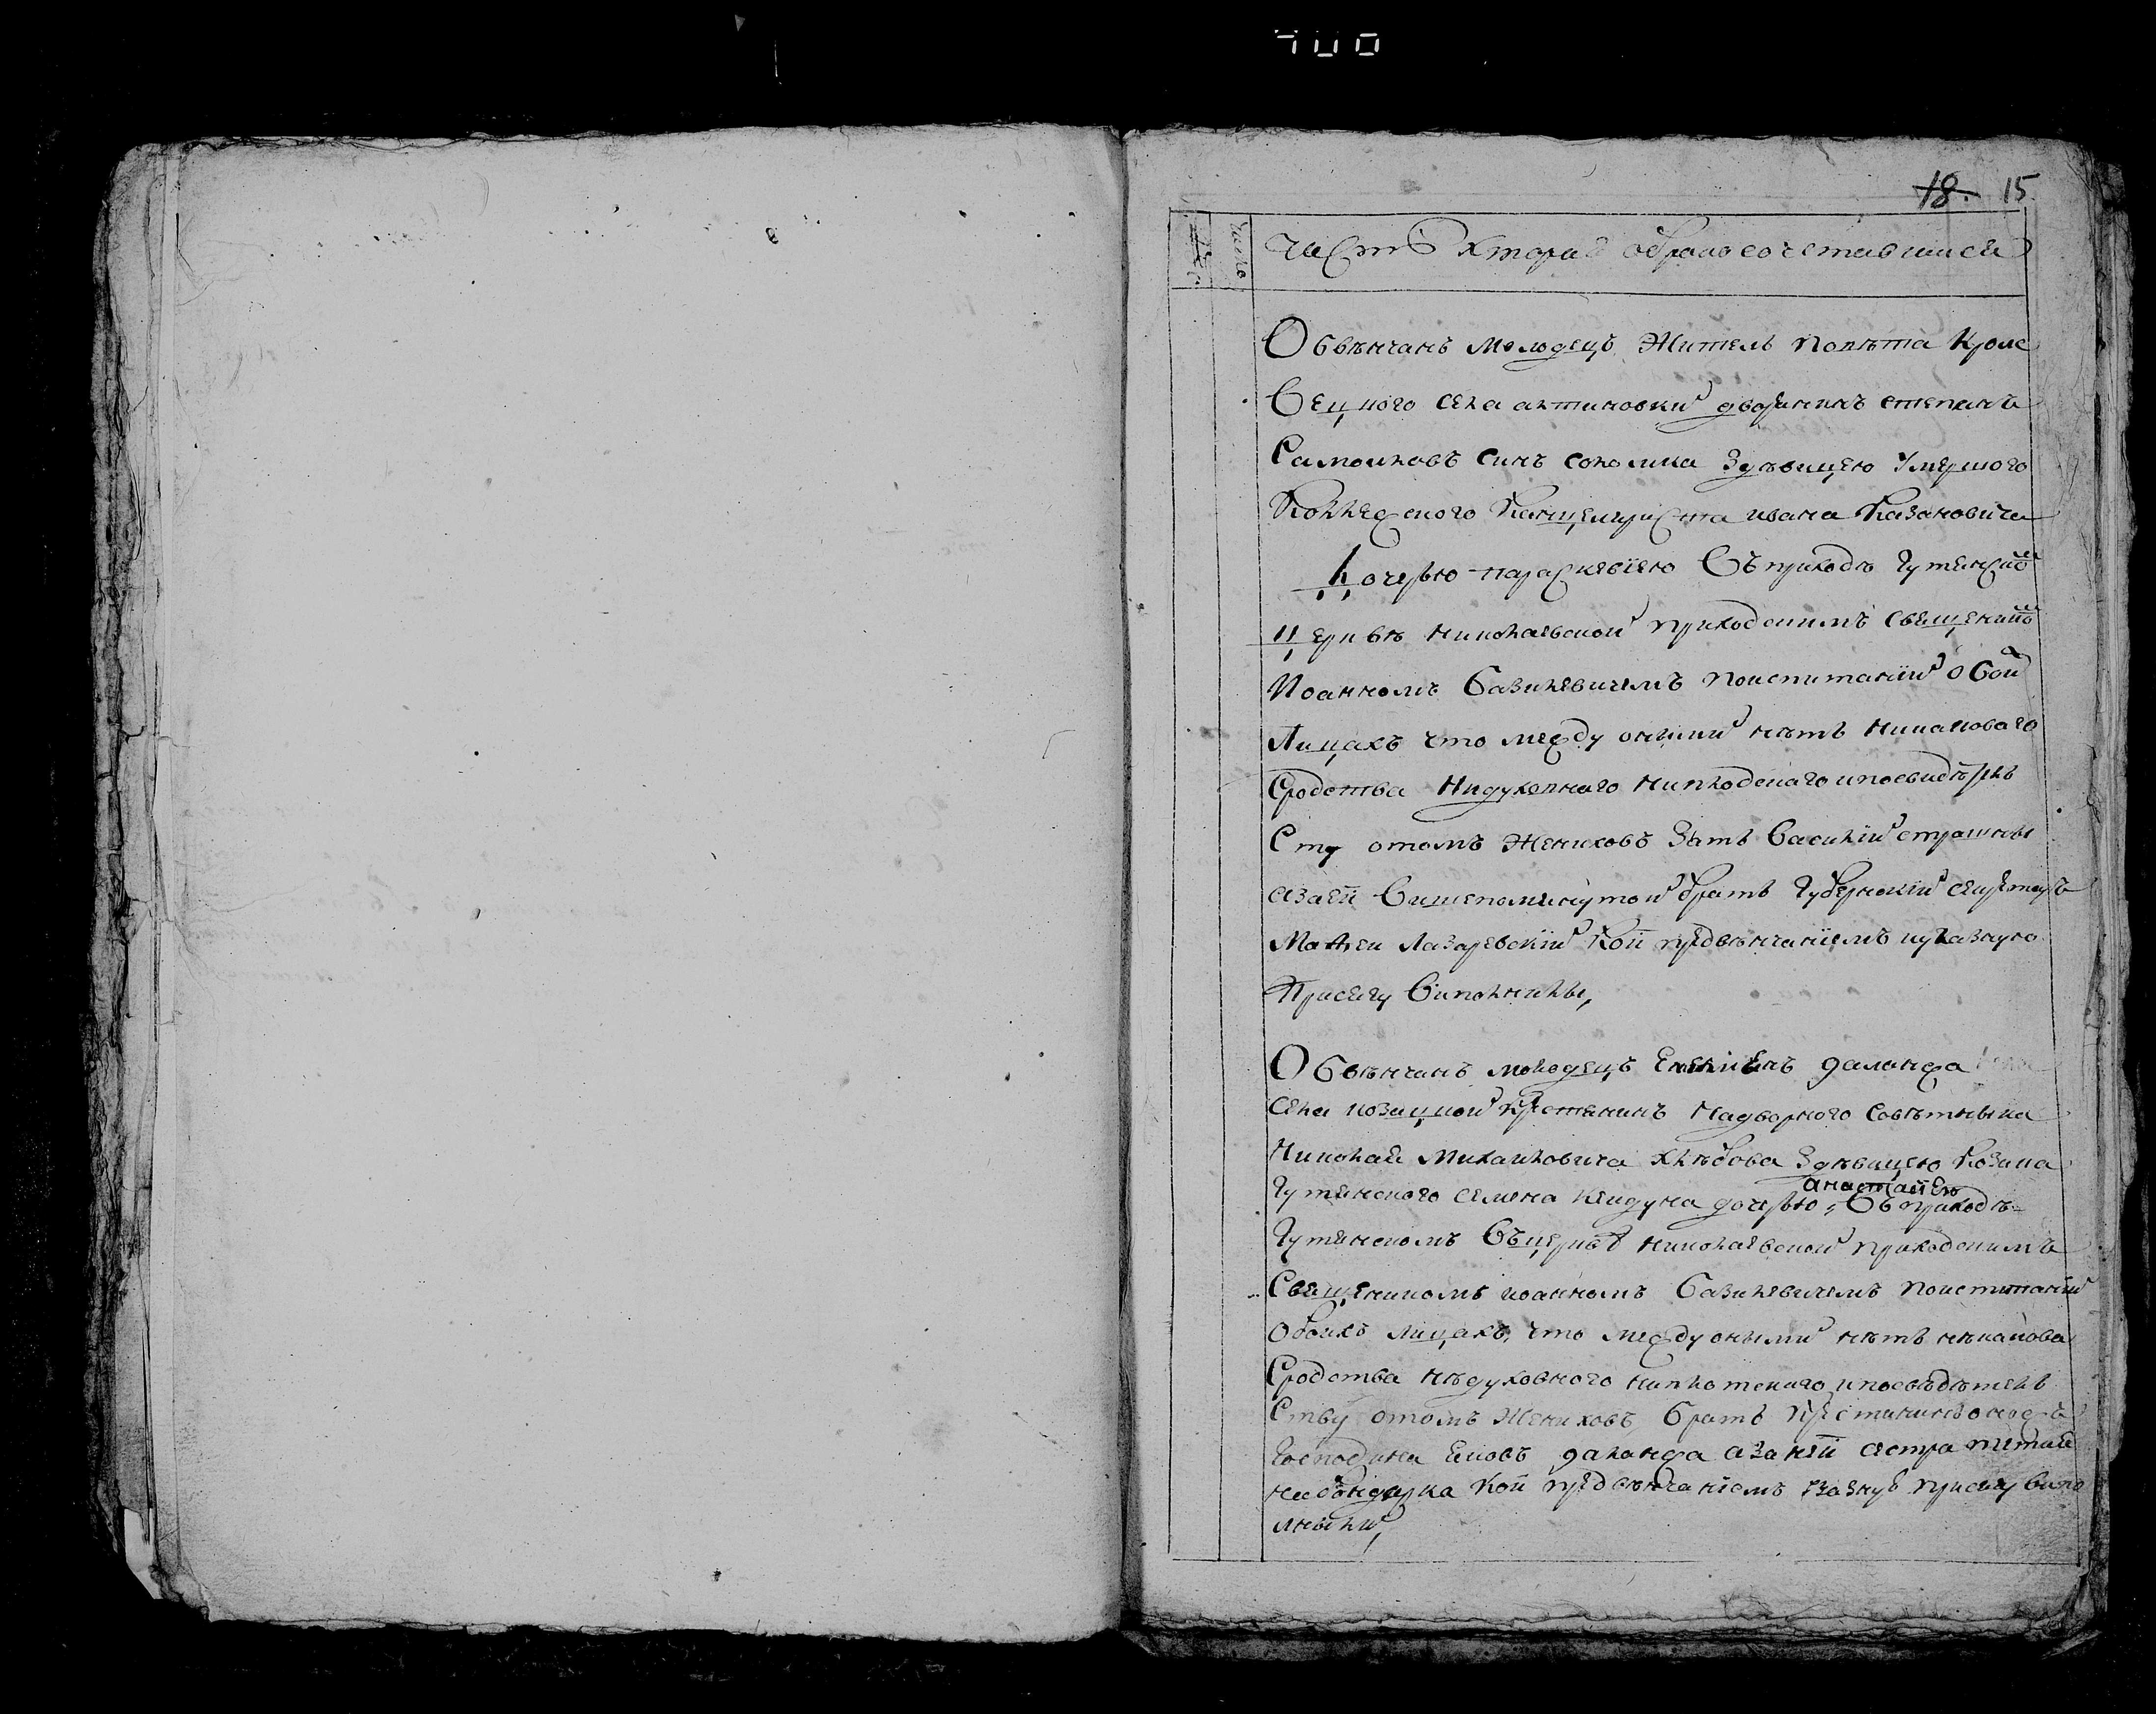 700
18. 15
число
Часть втораѧ о бракосочетавшихся
Обвѣнчанъ молодецъ житель повѣта Кроле
вецкого села актиновки дворянинъ степанъ
Самоиловъ синъ соколика здѣвицею умершого
Коллежского Канцеляриста ивана Казановича
дочерью параскевіею въ приходѣ Гутянской
церквѣ николаевской приходскимъ священикомъ
Иоанномъ Базилевичемъ поиспитаніи о обоих
лицахъ что между оними нѣтъ никаковаго
сродства нидуховнаго ниплодскаго ипосвидѣтель
ству отомъ жениховъ зять Василий
азаей вишепомянутой братъ Губернский секретаръ
Матвеи Лазаревский кои предвѣнчаниемъ иуказную
присягу виполнили,
Обвѣнчанъ молодецъ Емелиянъ даланда
села козацкой крестянинъ Надворного совѣтныка
Николая Михаиловича хлѣбова здѣвицею козака
Гутянского семена кендуна дочерью анастасиею въ приходѣ
Гутянскомъ въцерквѣ николаевской приходскимъ
Священикомъ иоанномъ Базилевичемъ поиспитании
обоихъ лицахъ, что между оными нѣтъ нѣкаков
сродства нѣдуховного ниплотского ипосвѣдѣтель
ству отомъ жениховъ братъ крестянинъ оногожъ
господина Ековъ даланда азаней сестра
кои предвѣнчаниемъ присягу випо
лныли,